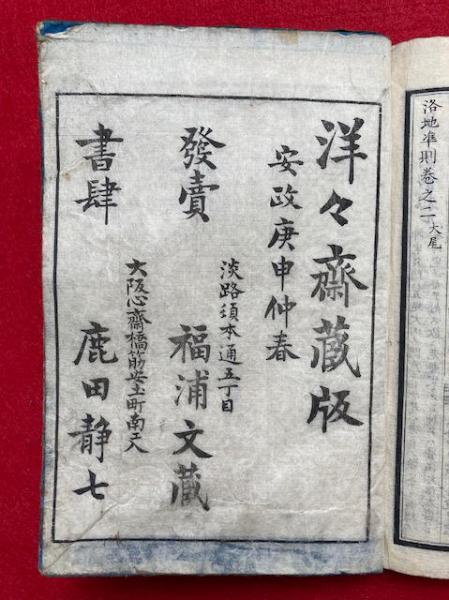 洛地準則卷之二大尾
洋々齋藏版
安政庚申仲春
發賣
淡路須本通五丁目
福浦文藏
書肆
大阪心齋橋筋安土町南エ入
鹿田静七